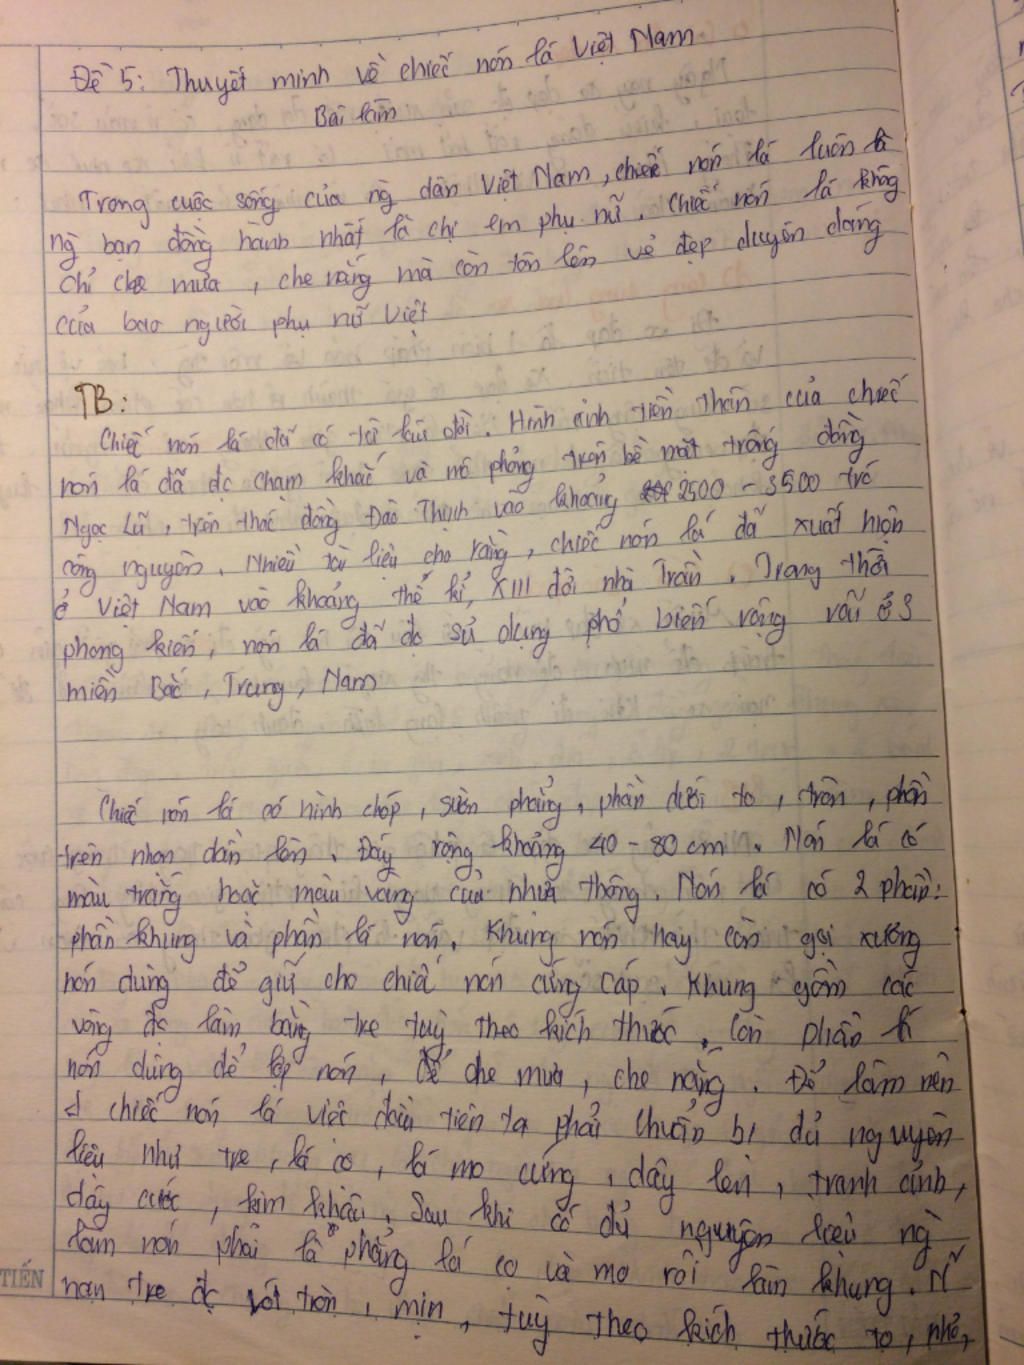 Đề 5: Thuyết minh về chiếc nón lá Việt Nam
Bài làm
Trong cuộc sống của ng dân Việt Nam, chiếc nón lá luôn là
ng bạn đồng hành nhất là chị em phụ nữ. Chiếc nón lá không
chỉ che mưa, che nắng mà còn tôn lên vẻ đẹp duyên dáng
của bao người phụ nữ Việt
TB:
Chiếc nón lá đã có từ lâu đời. Hình ảnh tiền thân của chiếc
nón lá đã đc chạm khắc và mô phỏng trên bề mặt trống đồng
Ngọc Lũ, trên thạc đồng Đào Thịnh vào khoảng 2500 - 3500 trc
công nguyên. Nhiều tài liệu cho rằng, chiếc nón lá đã xuất hiện
ở Việt Nam vào khoảng thế kỉ XIII đời nhà Trần. Trong thời
phong kiến, nón lá đã đc sử dụng phổ biến rộng rãi ở 3
miền Bắc, Trung, Nam
Chiếc nón lá có hình chóp, sườn phẳng, phần dưới to, tròn, phần
trên nhọn dần lên. Đáy rộng khoảng 40 - 80 cm. Nón lá có
màu trắng hoặc màu vàng của nhựa thông. Nón lá có 2 phần:
phần khung và phần lá nón. Khung nón hay còn gọi xương
nón dùng để giữ cho chiếc nón cứng cáp. Khung gồm các
vòng đc làm bằng tre tuỳ theo kích thước. Còn phần lá
nón dùng để lợp nón, để che mưa, che nắng. Để làm nên
1 chiếc nón lá việc đầu tiên ta phải chuẩn bị đủ nguyên
liệu như tre, lá cọ, lá mo cứng, dây len, tranh ảnh,
dây cước, kim khâu. Sau khi có đủ nguyên liệu ng
làm nón phải là phẳng lá cọ và mo rồi làm khung.
nan tre đc vót tròn, mịn, tuỳ theo kích thước to, nhỏ,
TIẾN